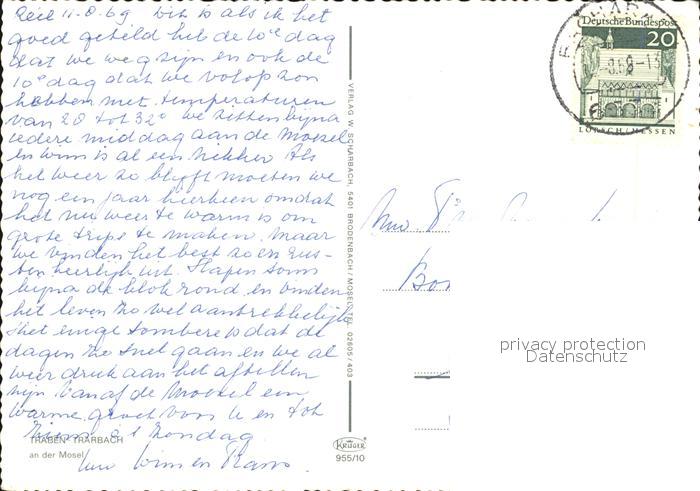 Zell 11.8.69 Dit is als ik het
goed geteld heb de 10e dag
dat we weg zijn en ook de
10e dag dat we volop zon
hebben met temperaturen
van 28 tot 32° we zitten bijna
iedere middag aan de Moezel
en Wim is al een nikker Als
het weer zo blijft moeten we
nog een jaar hierheen omdat
het nu weer te warm is om
grote trips te maken. Maar
we vinden het best zo en rus-
ten heerlijk uit. Slapen soms
bijna de klok rond en vinden
het leven zo wel aantrekkelijk
Het enige sombere is dat de
dagen zo snel gaan en we al
weer druk aan het aftellen
zijn. Vanaf de Moezel een
warme groet voor U en tot
zondag
Wim en
TRABEN-TRARBACH
an der Mosel
VERLAG W. SCHARRBACH, 5401 BRODENBACH / MOSEL, TEL. 02605/403
KRÜGER
955/10
Deutsche Bundespost
20
LORSCH/HESSEN
privacy protection
Datenschutz